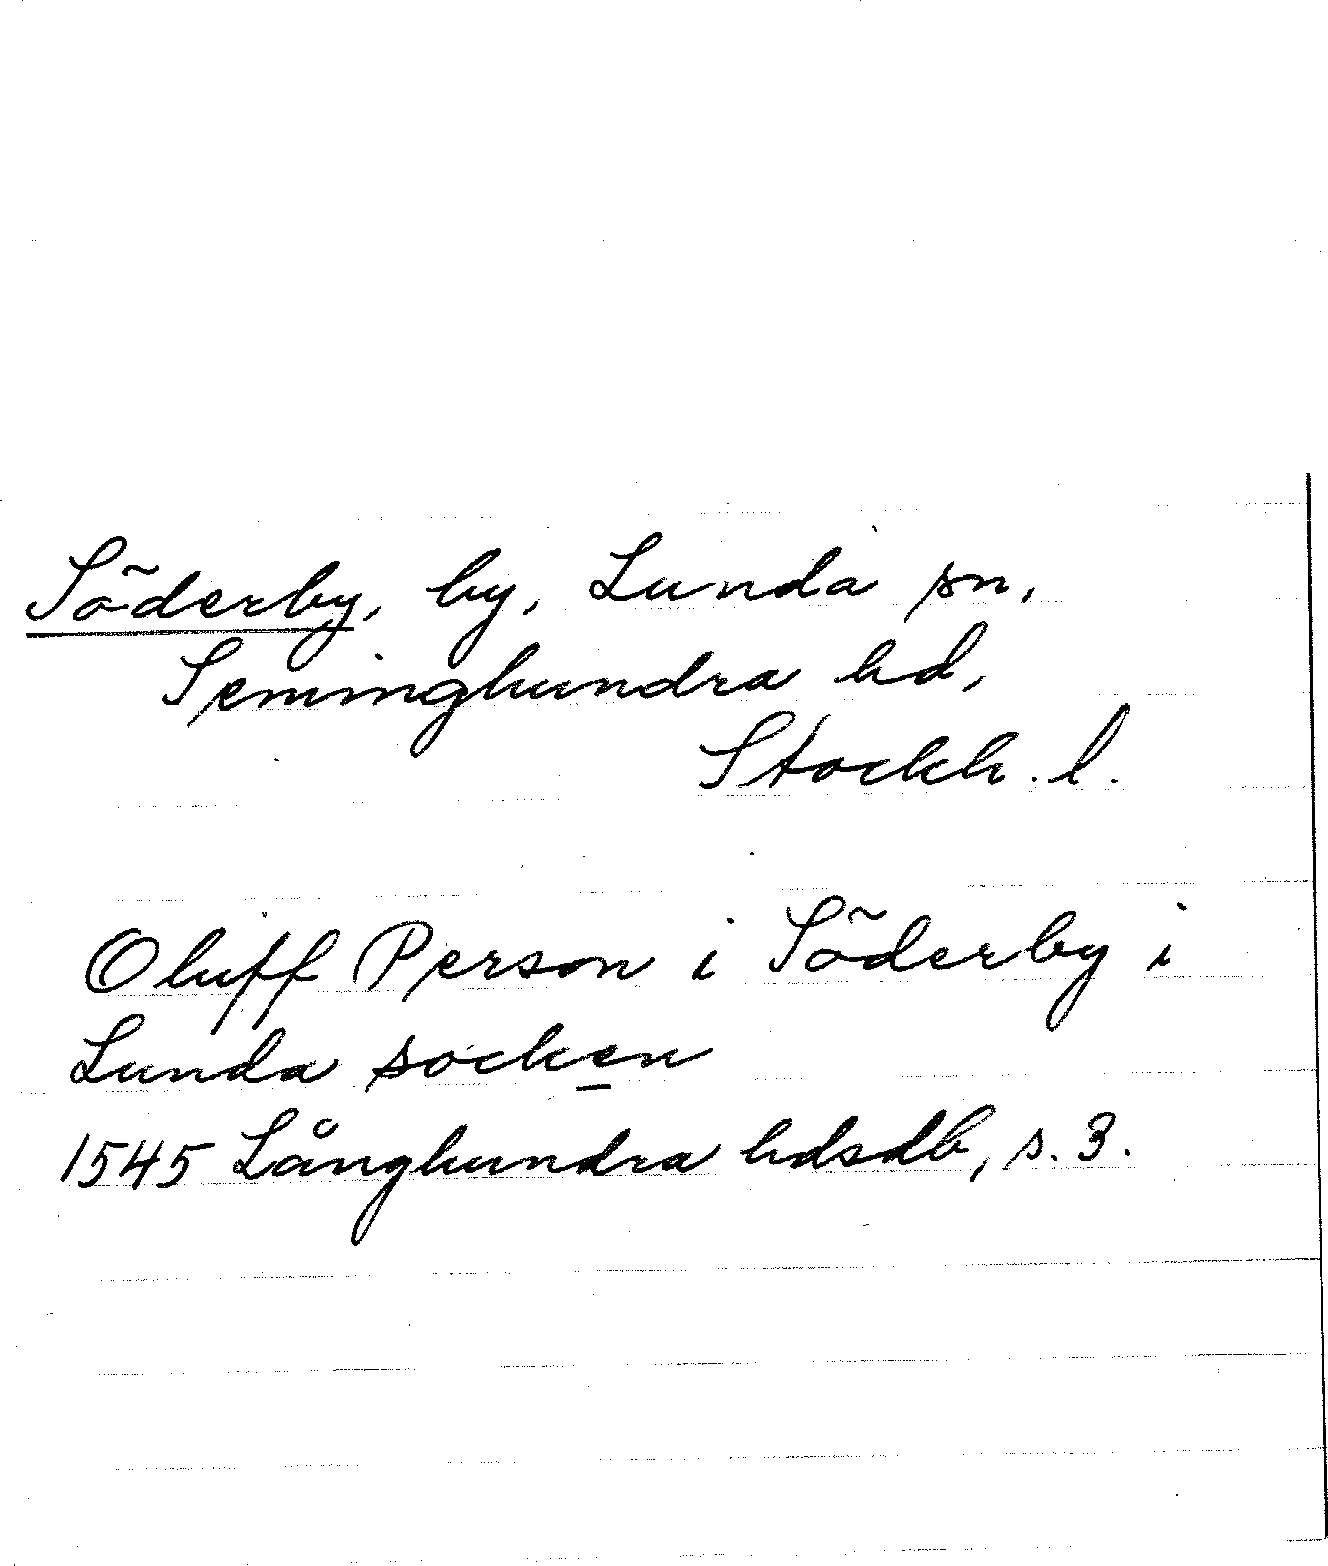 Söderby, by, Lunda sn,
Seminghundra hd,
Stockh. l.
Oluff Person i Söderby i
Lunda socken
1545 Långhundra hdsdb, s. 3.